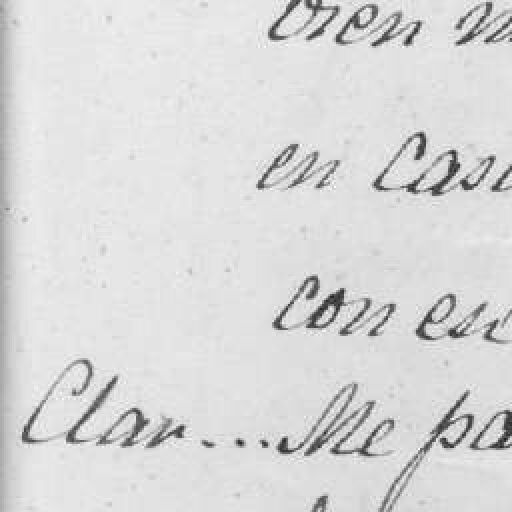 bien
en Casi
con ese
Clar... Me pa